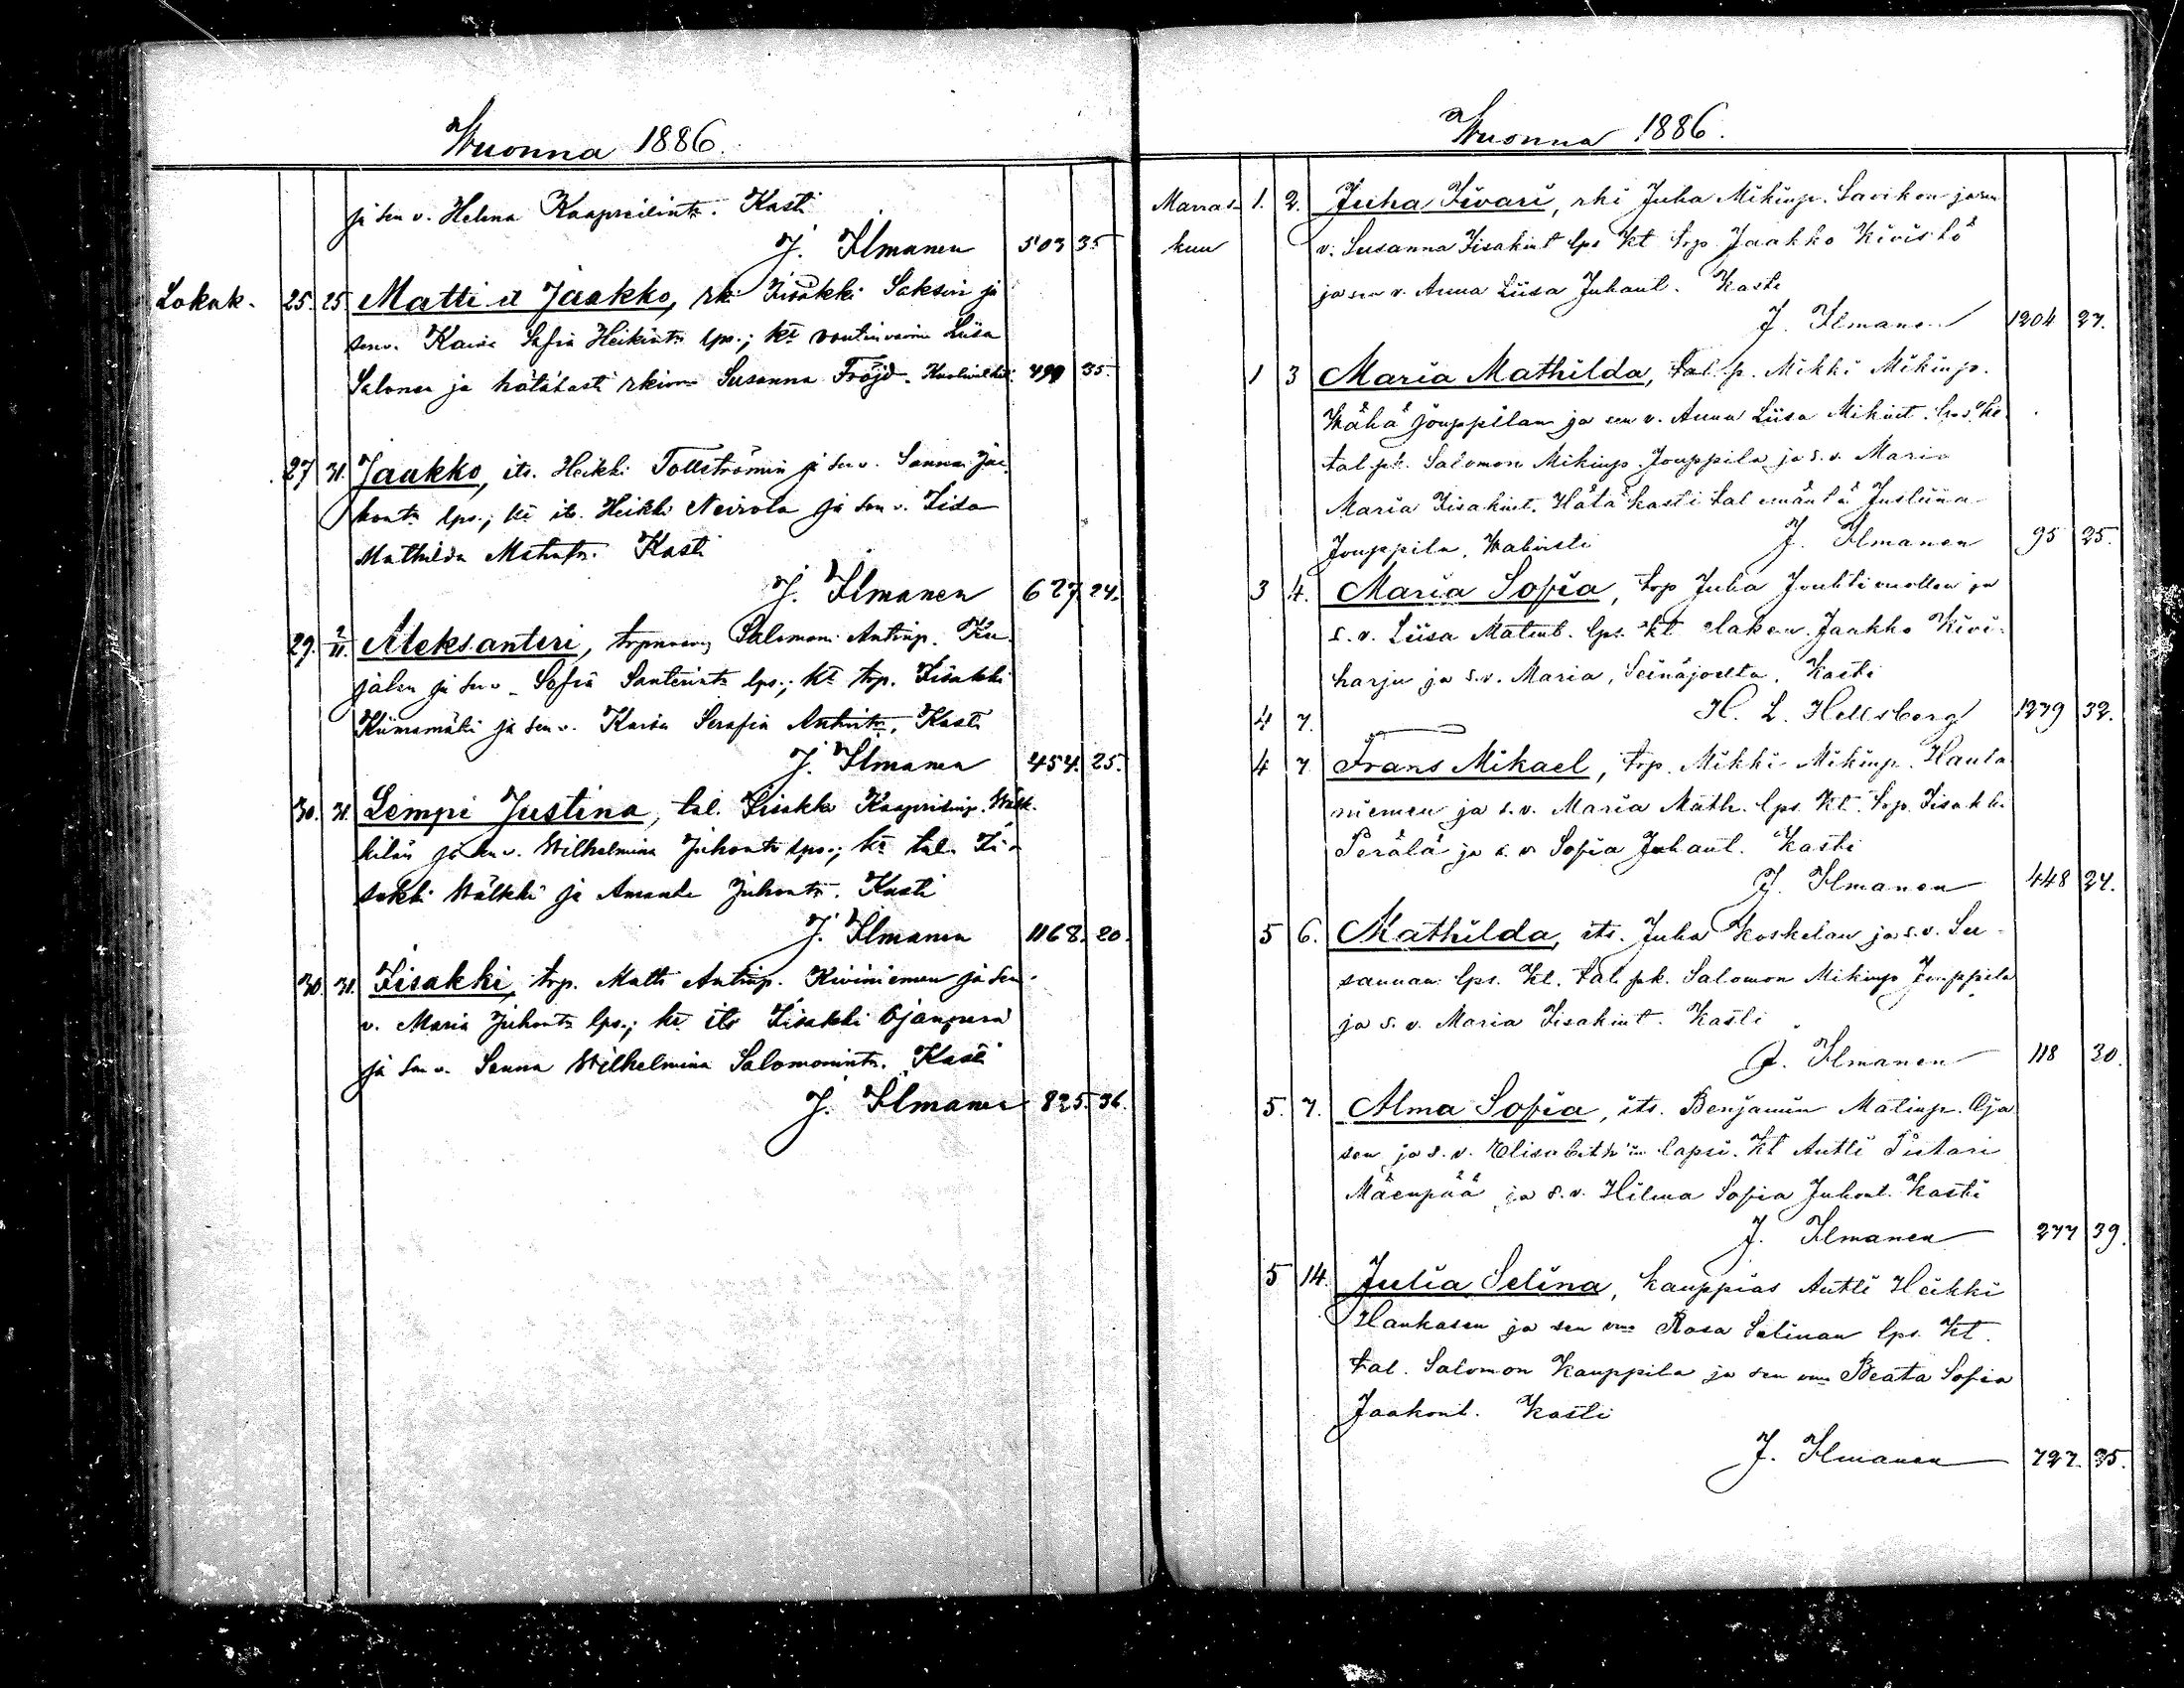 Wuonna 1886.
ja sen v. Helena Kaaprielintr. Kasti
J. Ilmanen 503 35
Lokak. 25. 25. Matti a Jaakko, rki Iisakki Saksin ja
sen v. Kaisa Sofia Heikintr lps.; kt Liisa
Salonen ja hätäkasti rkivmo Susanna Fröjd. 499 35.
27 31. Jaakko, its. Heikki Tollströmin ja sen v. Sanna Jaa
kontr lps.; kt its. Heikki Neirola ja sen v. Iida
Mathilda Matintr. Kasti
J. Ilmanen 627 24.
29. 2/11. Aleksanteri, Salomoni Antinp. Ku
jalan ja sen v. Sofia Santerintr lps.; kt trp. Iisakki
Kiimamäki ja sen v. Kaisa Serafia Antintr. Kasti
J. Ilmanen 454. 25.
30. 31. Lempi Justina, tal. Iisakki Kaaprielinp. Wälk
kilän ja sen v. Wilhelmina Juhontr lps.; kt tal. Ii
sakki Wälkki ja Amanda Juhontr. Kasti
J. Ilmanen 1168. 20.
30. 31. Iisakki, trp. Matti Antinp. Kiviniemen ja sen
v. Maria Juhontr lps.; kt its Iisakki Ojanperä
ja sen v. Sanna Wilhelmina Salomonintr. Kasti
J. Ilmanen 825. 36.
Wuonna 1886.
Marras- 1. 2. Juha Iivari, rki Juha Mikinp. Savikon ja sen
kuu v. Susanna Iisakint lps Kt trp. Jaakko Kivistö
ja sen v. Anna Liisa Juhant. Kasti
J. Ilmanen 1204 27.
1 3 Maria Mathilda, tal. p. Mikki Mikinp.
Wähä Jouppilan ja sen v. Anna Liisa Mikint. lps. Kt
tal. pk. Salomon Mikinp. Jouppila ja s. v. Maria
Maria Iisakint. Hätäkasti tal emäntä Justiina
Jouppila, Wahvisti J. Ilmanen 95 25.
3 4. Maria Sofia, trp Juha Jouhtimullan ja
s. v. Liisa Matint. lps. Kt Jaakko Kivi-
harju ja s. v. Maria, Seinäjoelta. Kasti
4 7. H. L. Hellsberg 1279 32.
4 7 Frans Mikael, trp. Mikki Mikinp. Hauta
niemen ja s. v. Maria Math. lps. Kt. trp. Iisakki
Perälä ja s. v. Sofia Juhant. Kasti
J. Ilmanen 448 24.
5 6. Mathilda, its. Juha Koskelan ja s. v. Su-
sannan lps. Kt. tal. pk. Salomon Mikinp Jouppila
ja s. v. Maria Iisakint. Kasti
J. Ilmanen 118 30.
5. 7. Alma Sofia, its. Benjamin Matinp. Oja
sen ja s. v. Elisabeth'in lapsi. Kt Antti Pietari
Mäenpää ja s. v. Hilma Sofia Juhont. Kasti
J. Ilmanen 277 39.
5 14. Julia Selina, kauppias Antti Heikki
Hankasen ja sen vmo Rosa Selinan lps. Kt.
tal. Salomon Kauppila ja sen vmo Beata Sofia
Jaakont. Kasti
J. Ilmanen 727. 35.